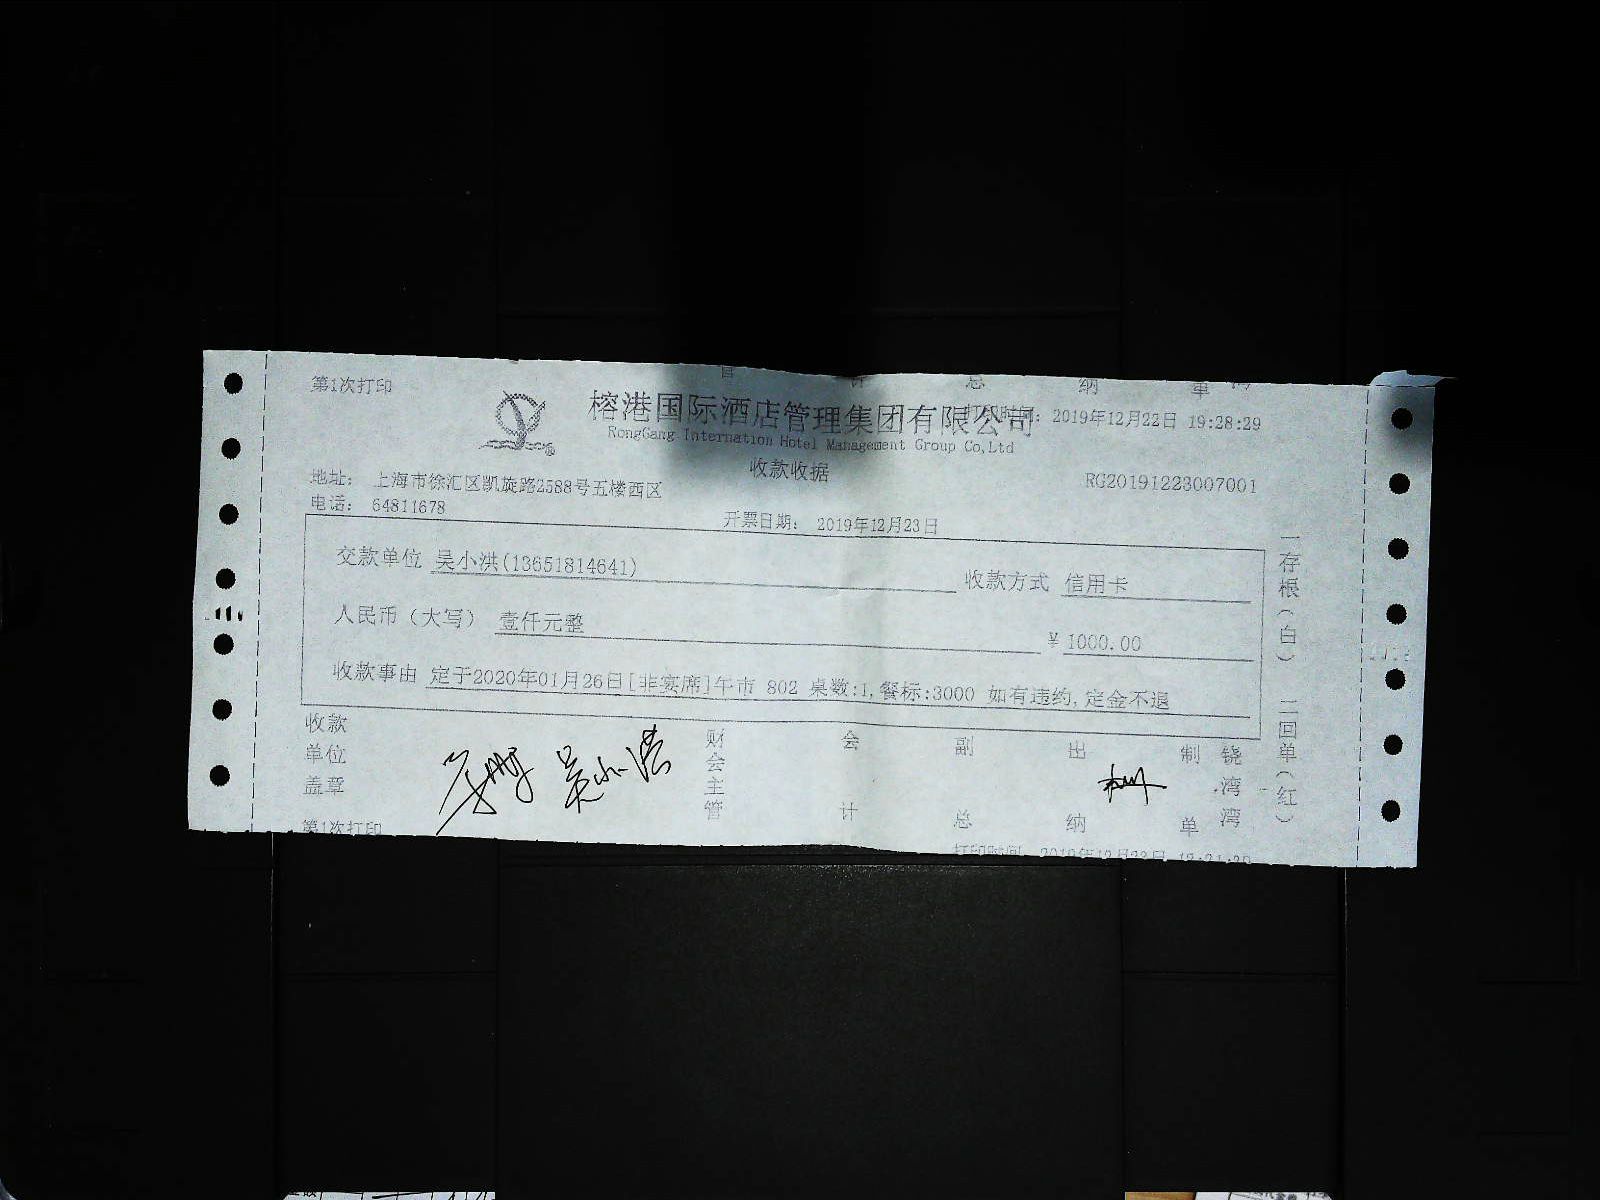 第1次打印
榕港国际酒店管理集团有限公司
打印时间: 2019年12月22日 19:28:29
RongGang Internation Hotel Management Group Co,Ltd
收款收据
地址: 上海市徐汇区凯旋路2588号五楼西区
RG20191223007001
电话: 64811678
开票日期: 2019年12月23日
交款单位 吴小洪(13651814641)
收款方式 信用卡
人民币(大写) 壹仟元整
¥ 1000.00
收款事由 定于2020年01月26日[非宴席]午市 802 桌数:1,餐标:3000 如有违约,定金不退
一存根(白) 二回单(红)
收款单位盖章
吴小洪
财会主管
会计
副总
出纳
制单
铙湾湾
第1次打印
打印时间